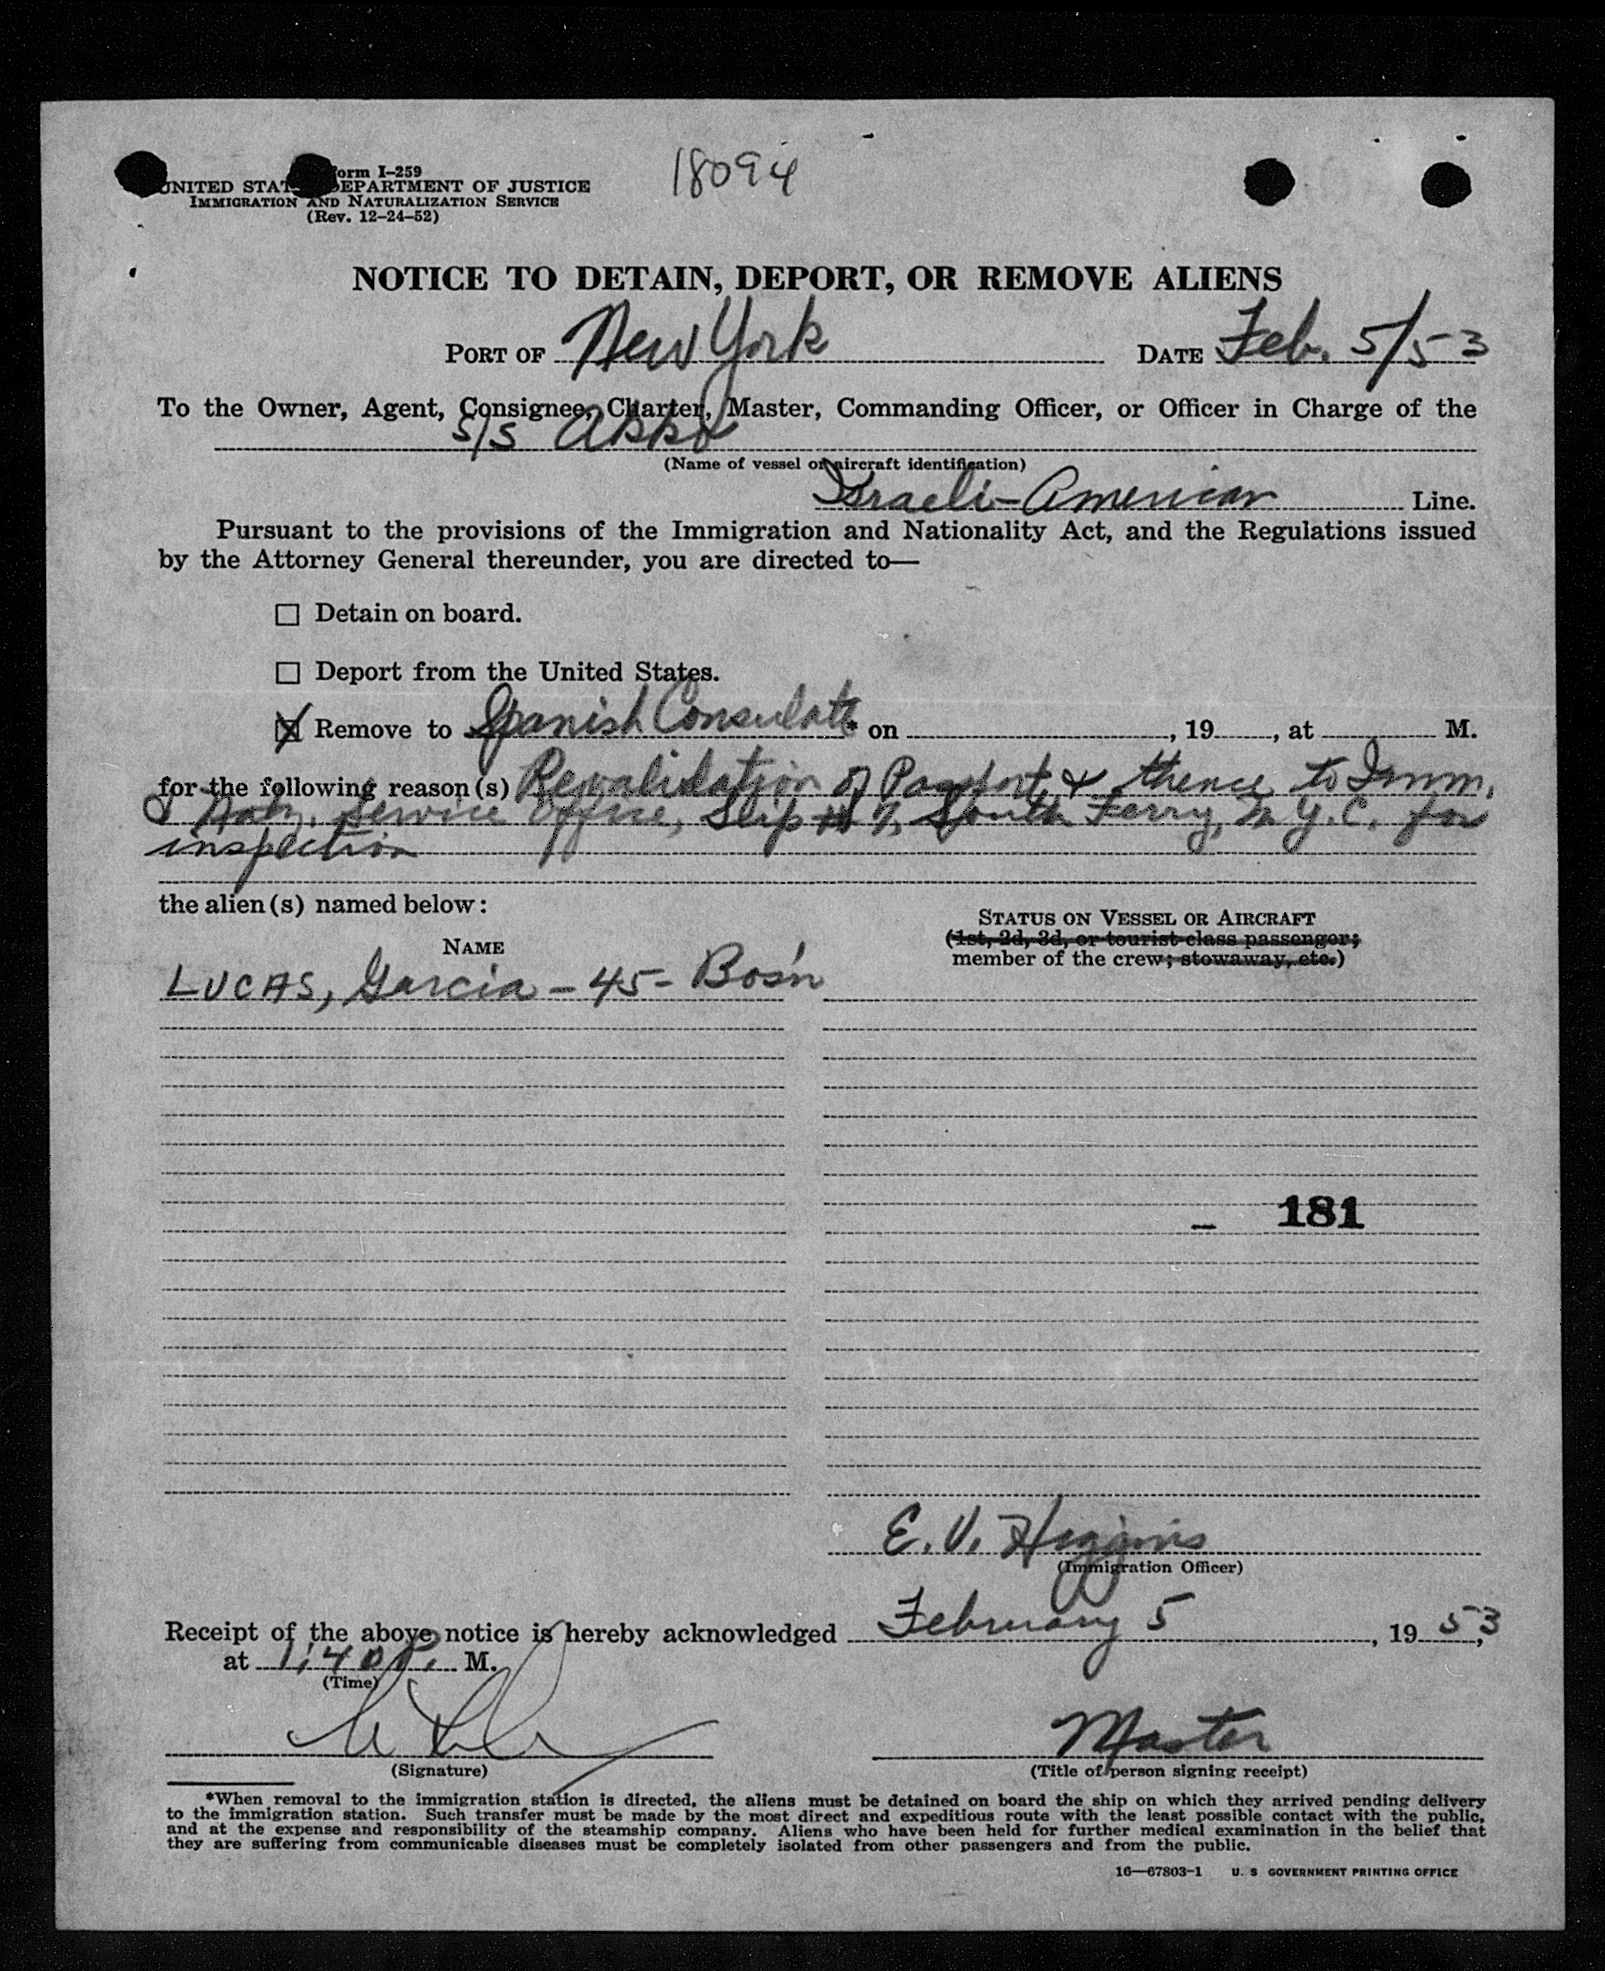 Form I-259
18094
UNITED STATES DEPARTMENT OF JUSTICE
IMMIGRATION AND NATURALIZATION SERVICE
(Rev. 12-24-52)
NOTICE TO DETAIN, DEPORT, OR REMOVE ALIENS
PORT OF New York DATE Feb. 5/53
To the Owner, Agent, Consignee, Charter, Master, Commanding Officer, or Officer in Charge of the
S/S Akko
(Name of vessel or aircraft identification)
Israeli-American Line.
Pursuant to the provisions of the Immigration and Nationality Act, and the Regulations issued
by the Attorney General thereunder, you are directed to—
☐ Detain on board.
☐ Deport from the United States.
☒ Remove to Spanish Consulate * on , 19 , at M.
for the following reason(s) Revalidation of Passport & thence to Imm.
& Natz. Service Office, Slip # 7, South Ferry, N.Y.C. for
inspection
the alien(s) named below:
STATUS ON VESSEL OR AIRCRAFT
(1st, 2d, 3d, or tourist class passenger;
NAME
member of the crew; stowaway, etc.)
LUCAS, Garcia - 45 - Bos'n
- 181
E. V. Higgins
(Immigration Officer)
Receipt of the above notice is hereby acknowledged February 5, 1953,
at 1:40 P. M.
(Time)
Master
(Signature) (Title of person signing receipt)
*When removal to the immigration station is directed, the aliens must be detained on board the ship on which they arrived pending delivery
to the immigration station. Such transfer must be made by the most direct and expeditious route with the least possible contact with the public,
and at the expense and responsibility of the steamship company. Aliens who have been held for further medical examination in the belief that
they are suffering from communicable diseases must be completely isolated from other passengers and from the public.
16—67803-1 U. S. GOVERNMENT PRINTING OFFICE